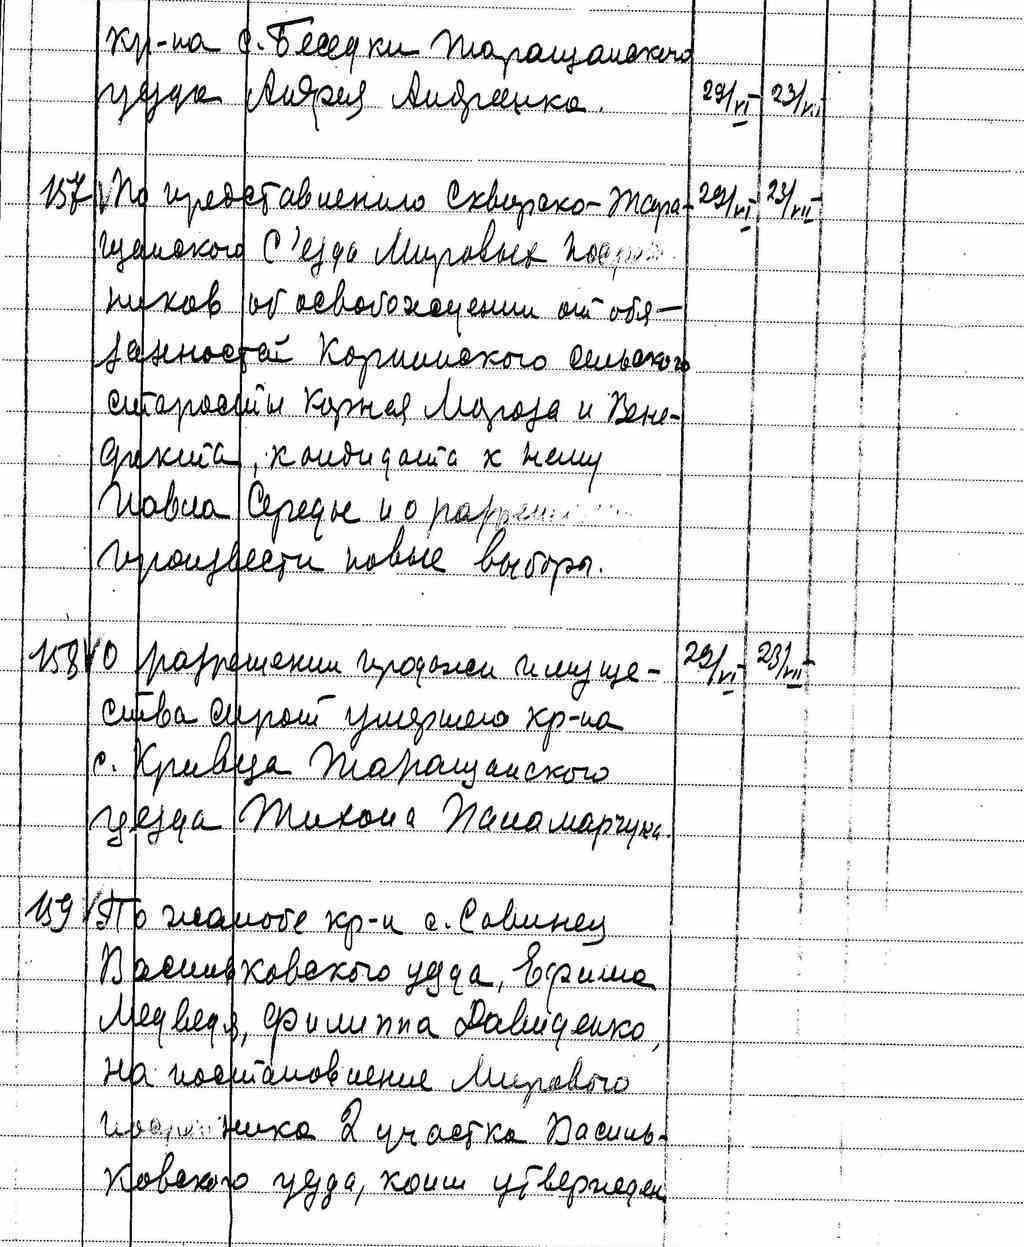 кр-на с. Беседки Таращанского
уезда Андрея Андреенка. 29/VI 23/VII
157 По представлению Сквирско-Тара- 29/VI 23/VII
щанского С'езда Мировых Посред
ников об освобождении от обя-
занностей сельского
старосты Корнея Мороза и Вене-
дикта, кандидата к нему
Павла Середы и о разрешении
произвести новые выборы.
158 О разрешении продажи имуще- 29/VI 23/VII
ства сирот умершего кр-на
с. Кривца Таращанского
уезда Тихона Панамарчука.
159 По жалобе кр-н с. Савинец
Васильковского уезда, Ефима
Медведя, Филиппа Давиденко,
на постановление Мирового
посредника 2 участка Василь-
ковского уезда, коим утвержден